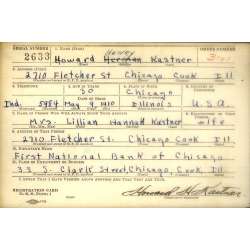 SERIAL NUMBER 1. NAME (Print) ORDER NUMBER
HENRY
2633 Howard Herman Kastner
2. ADDRESS (Print)
2710 Fletcher St. Chicago Cook Ill.
3. TELEPHONE 4. AGE IN YEARS 5. PLACE OF BIRTH 6. COUNTRY OF CITIZENSHIP
30 Chicago
Ind. 5984 May 9, 1910 Illinois U.S.A.
7. NAME OF PERSON WHO WILL ALWAYS KNOW YOUR ADDRESS 8. RELATIONSHIP OF THAT PERSON
Mrs. Lillian Hannah Kastner wife
9. ADDRESS OF THAT PERSON
2710 Fletcher St. Chicago Cook Ill.
10. EMPLOYER'S NAME
First National Bank of Chicago
11. PLACE OF EMPLOYMENT OR BUSINESS
33 S. Clark Street, Chicago, Cook Ill.
I AFFIRM THAT I HAVE VERIFIED ABOVE ANSWERS AND THAT THEY ARE TRUE.
REGISTRATION CARD
D. S. S. Form 1
Howard H. Kastner